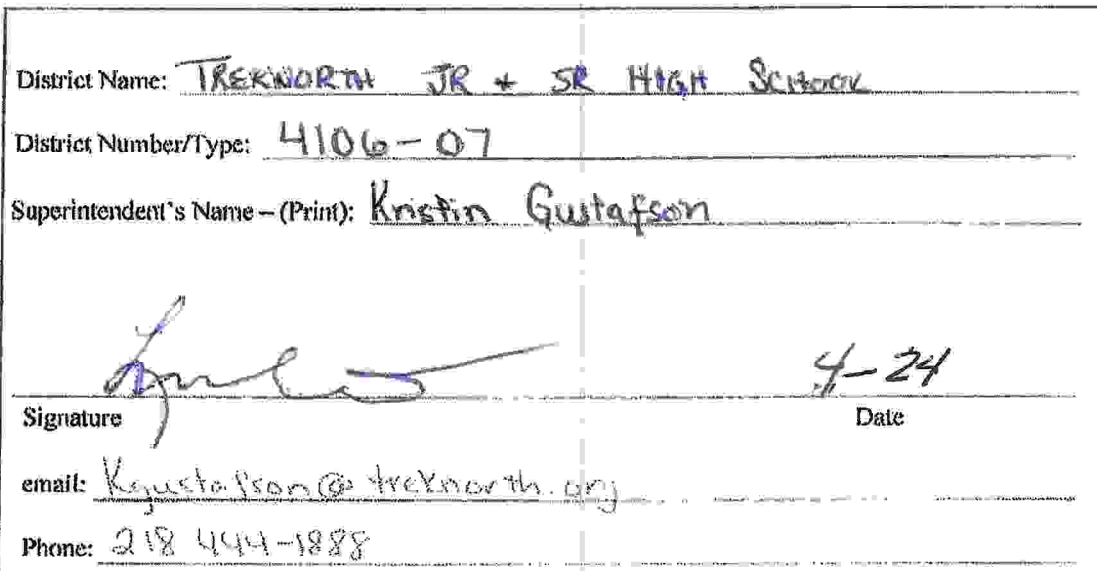 District Name: TREKNORTH JR + SR HIGH SCHOOL
District Number/Type: 4106-07
Superintendent's Name – (Print): Kristin Gustafson
4-24
Signature Date
email: Kgustafson@treknorth.org
Phone: 218 444-1888